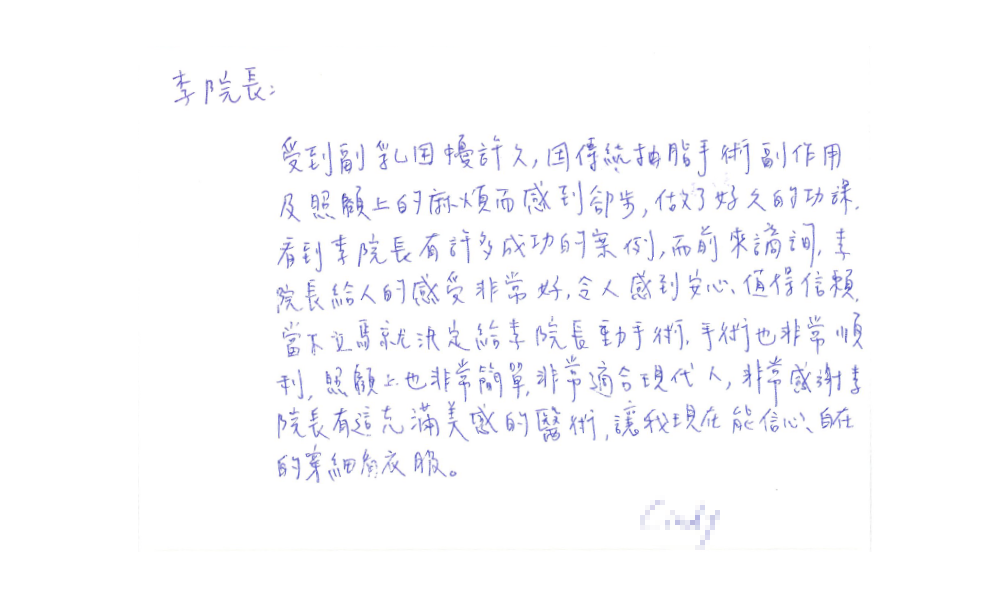 李院長:
受到副乳困擾許久,因傳統抽脂手術副作用
及照顧上的麻煩而感到卻步,做了好久的功課,
看到李院長有許多成功的案例,而前來諮詢,李
院長給人的感受非常好,令人感到安心、值得信賴,
當下立馬就決定給李院長動手術,手術也非常順
利,照顧上也非常簡單,非常適合現代人,非常感謝李
院長有這充滿美感的醫術,讓我現在能信心、自在
的穿細肩衣服。